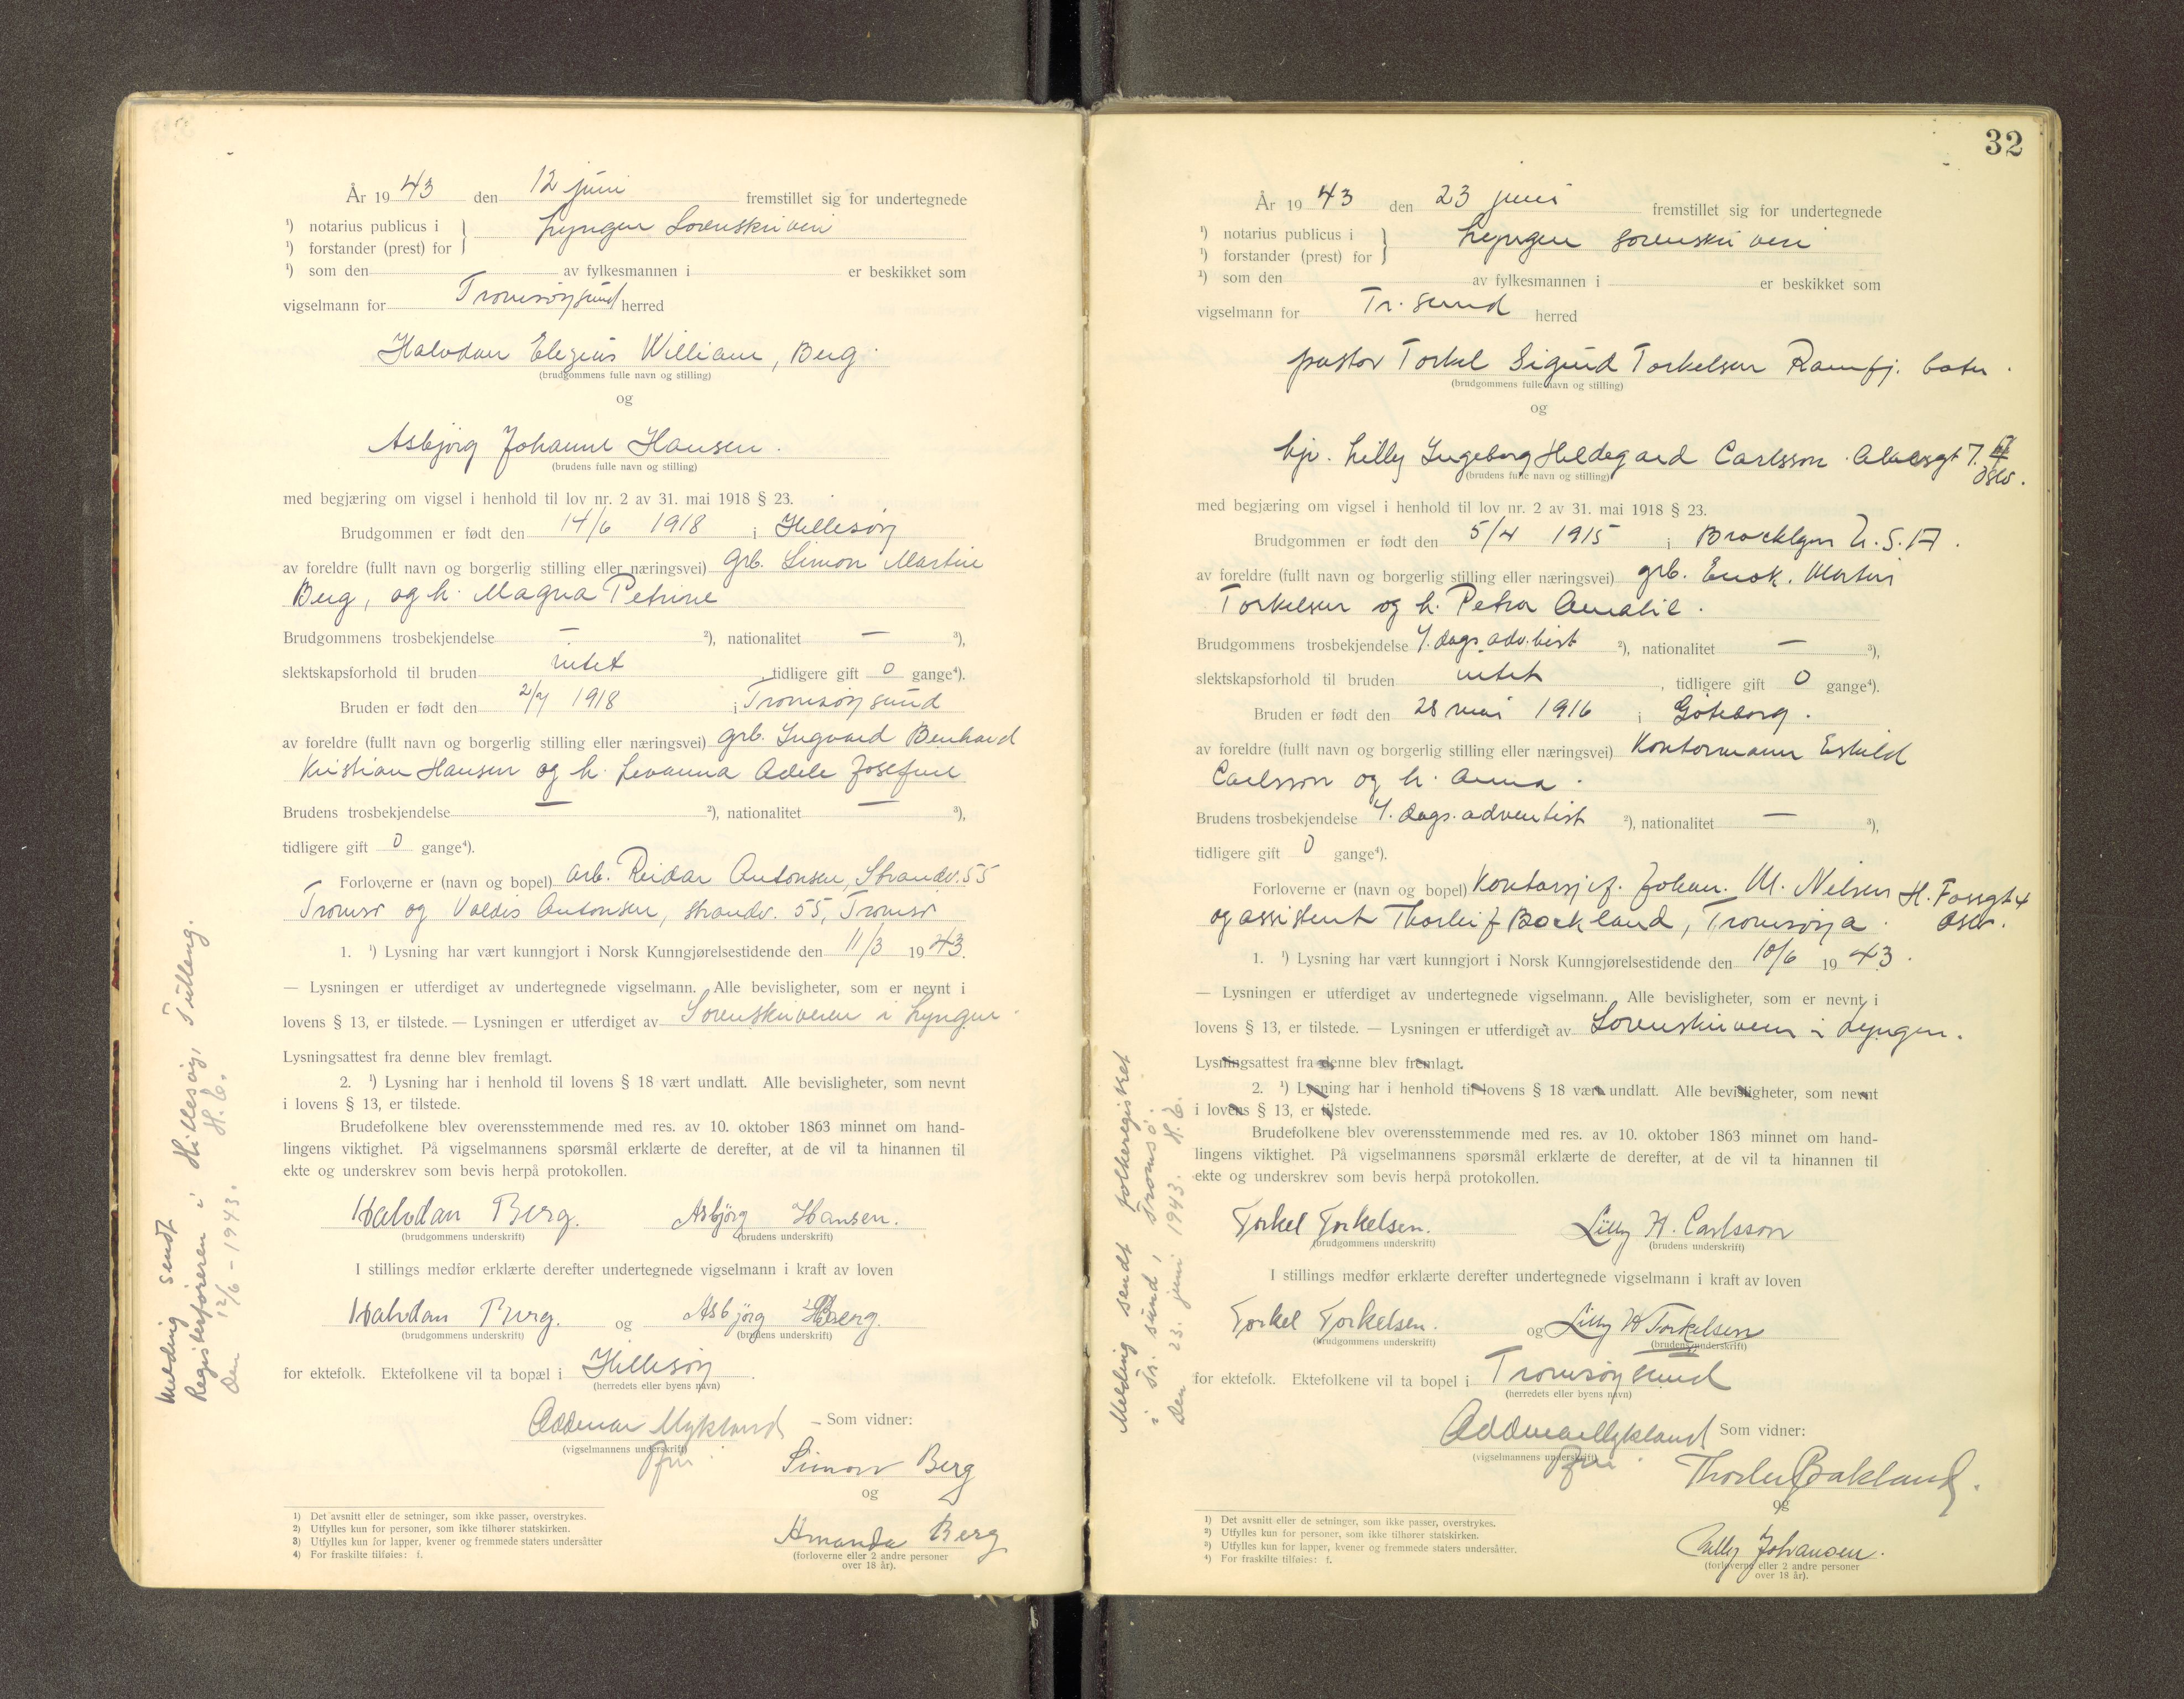 År 1943 den 12 juni fremstillet sig for undertegnede
¹) notarius publicus i
¹) forstander (prest) for } Lyngen Sorenskriveri
¹) som den av fylkesmannen i er beskikket som
vigselmann for Tromsøysund herred
Halvdan Elezius William, Berg.
(brudgommens fulle navn og stilling)
og
Asbjørg Johanne Hansen.
(brudens fulle navn og stilling)
med begjæring om vigsel i henhold til lov nr. 2 av 31. mai 1918 § 23.
Brudgommen er født den 14/6 1918 i Hillesøy
av foreldre (fullt navn og borgerlig stilling eller næringsvei) grb. Simon Martin
Berg, og h. Magna Petrine
Brudgommens trosbekjendelse — ²), nationalitet — ³),
slektskapsforhold til bruden intet, tidligere gift 0 gange⁴).
Bruden er født den 2/7 1918 i Tromsøysund
av foreldre (fullt navn og borgerlig stilling eller næringsvei) grb. Ingvard Benhard
Kristian Hansen og h. Jevanna Adele Josefine
Brudens trosbekjendelse — ²), nationalitet — ³),
tidligere gift 0 gange⁴).
Forloverne er (navn og bopel) arb. Reidar Antonsen, Strandv. 55
Tromsø og Valdis Antonsen, strandv. 55, Tromsø
1. ¹) Lysning har vært kunngjort i Norsk Kunngjørelsestidende den 11/3 1943.
— Lysningen er utferdiget av undertegnede vigselmann. Alle bevisligheter, som er nevnt i
lovens § 13, er tilstede. — Lysningen er utferdiget av Sorenskriveren i Lyngen.
Lysningsattest fra denne blev fremlagt.
2. ¹) Lysning har i henhold til lovens § 18 vært undlatt. Alle bevisligheter, som nevnt
i lovens § 13, er tilstede.
Brudefolkene blev overensstemmende med res. av 10. oktober 1863 minnet om hand-
lingens viktighet. På vigselmannens spørsmål erklærte de derefter, at de vil ta hinannen til
ekte og underskrev som bevis herpå protokollen.
Halvdan Berg. Asbjörg Hansen.
(brudgommens underskrift) (brudens underskrift)
I stillings medfør erklærte derefter undertegnede vigselmann i kraft av loven
Halvdan Berg. og Asbjörg Berg.
(brudgommens underskrift) (brudens underskrift)
for ektefolk. Ektefolkene vil ta bopæl i Hillesøy.
(herredets eller byens navn)
Oddmar Mykland — Som vidner:
(vigselmannens underskrift)
Simon Berg
og
Amanda Berg
(forloverne eller 2 andre personer
over 18 år).
1) Det avsnitt eller de setninger, som ikke passer, overstrykes.
2) Utfylles kun for personer, som ikke tilhører statskirken.
3) Utfylles kun for lapper, kvener og fremmede staters undersåtter
4) For fraskilte tilføies: f.
Melding sendt
Registerføreren i Hillesøy, Tulleng.
den 12/6 - 1943. H. E.
32
År 1943 den 23 juni fremstillet sig for undertegnede
¹) notarius publicus i
¹) forstander (prest) for } Lyngen sorenskriveri
¹) som den av fylkesmannen i er beskikket som
vigselmann for Tr. sund herred
pastor Torkel Sigurd Torkelsen Ramfj. botn.
(brudgommens fulle navn og stilling)
og
Lilly Ingeborg Hildegard Carlsson
Oslo.
(brudens fulle navn og stilling)
med begjæring om vigsel i henhold til lov nr. 2 av 31. mai 1918 § 23.
Brudgommen er født den 5/4 1915 i Brocklyn U.S.A.
av foreldre (fullt navn og borgerlig stilling eller næringsvei) grb. Enok. Martin
Torkelsen og h. Petra Amalie.
Brudgommens trosbekjendelse 7. dags adv.tist ²), nationalitet — ³),
slektskapsforhold til bruden intet, tidligere gift 0 gange⁴).
Bruden er født den 28 mai 1916 i Göteborg.
av foreldre (fullt navn og borgerlig stilling eller næringsvei) Kontormann Eskild
Carlsson og h. Anna.
Brudens trosbekjendelse 7. dags. adventist ²), nationalitet — ³),
tidligere gift 0 gange⁴).
Forloverne er (navn og bopel) Kontorsjef. Johan. M. Nelsen H. Fossgt 4
og assistent Thorleif Bockland, Tromsøya. Oslo.
1. ¹) Lysning har vært kunngjort i Norsk Kunngjørelsestidende den 10/6 1943.
— Lysningen er utferdiget av undertegnede vigselmann. Alle bevisligheter, som er nevnt i
lovens § 13, er tilstede. — Lysningen er utferdiget av Sorenskriveren i Lyngen.
Lysningsattest fra denne blev fremlagt.
2. ¹) Lysning har i henhold til lovens § 18 vært undlatt. Alle bevisligheter, som nevnt
i lovens § 13, er tilstede.
Brudefolkene blev overensstemmende med res. av 10. oktober 1863 minnet om hand-
lingens viktighet. På vigselmannens spørsmål erklærte de derefter, at de vil ta hinannen til
ekte og underskrev som bevis herpå protokollen.
Torkel Torkelsen. Lilly H. Carlsson
(brudgommens underskrift) (brudens underskrift)
I stillings medfør erklærte derefter undertegnede vigselmann i kraft av loven
Torkel Torkelsen. og Lilly H Torkelsen
(brudgommens underskrift) (brudens underskrift)
for ektefolk. Ektefolkene vil ta bopel i Tromsøysund
(herredets eller byens navn)
Oddmar Mykland Som vidner:
(vigselmannens underskrift)
Thorleif Bakland.
og
Johansen.
(forloverne eller 2 andre personer
over 18 år).
1) Det avsnitt eller de setninger, som ikke passer, overstrykes.
2) Utfylles kun for personer, som ikke tilhører statskirken.
3) Utfylles kun for lapper, kvener og fremmede staters undersåtter.
4) For fraskilte tilføies: f.
Melding sendt folkeregistret
i Tr. sund, Tromsø.
den 23. juni 1943. H. E.